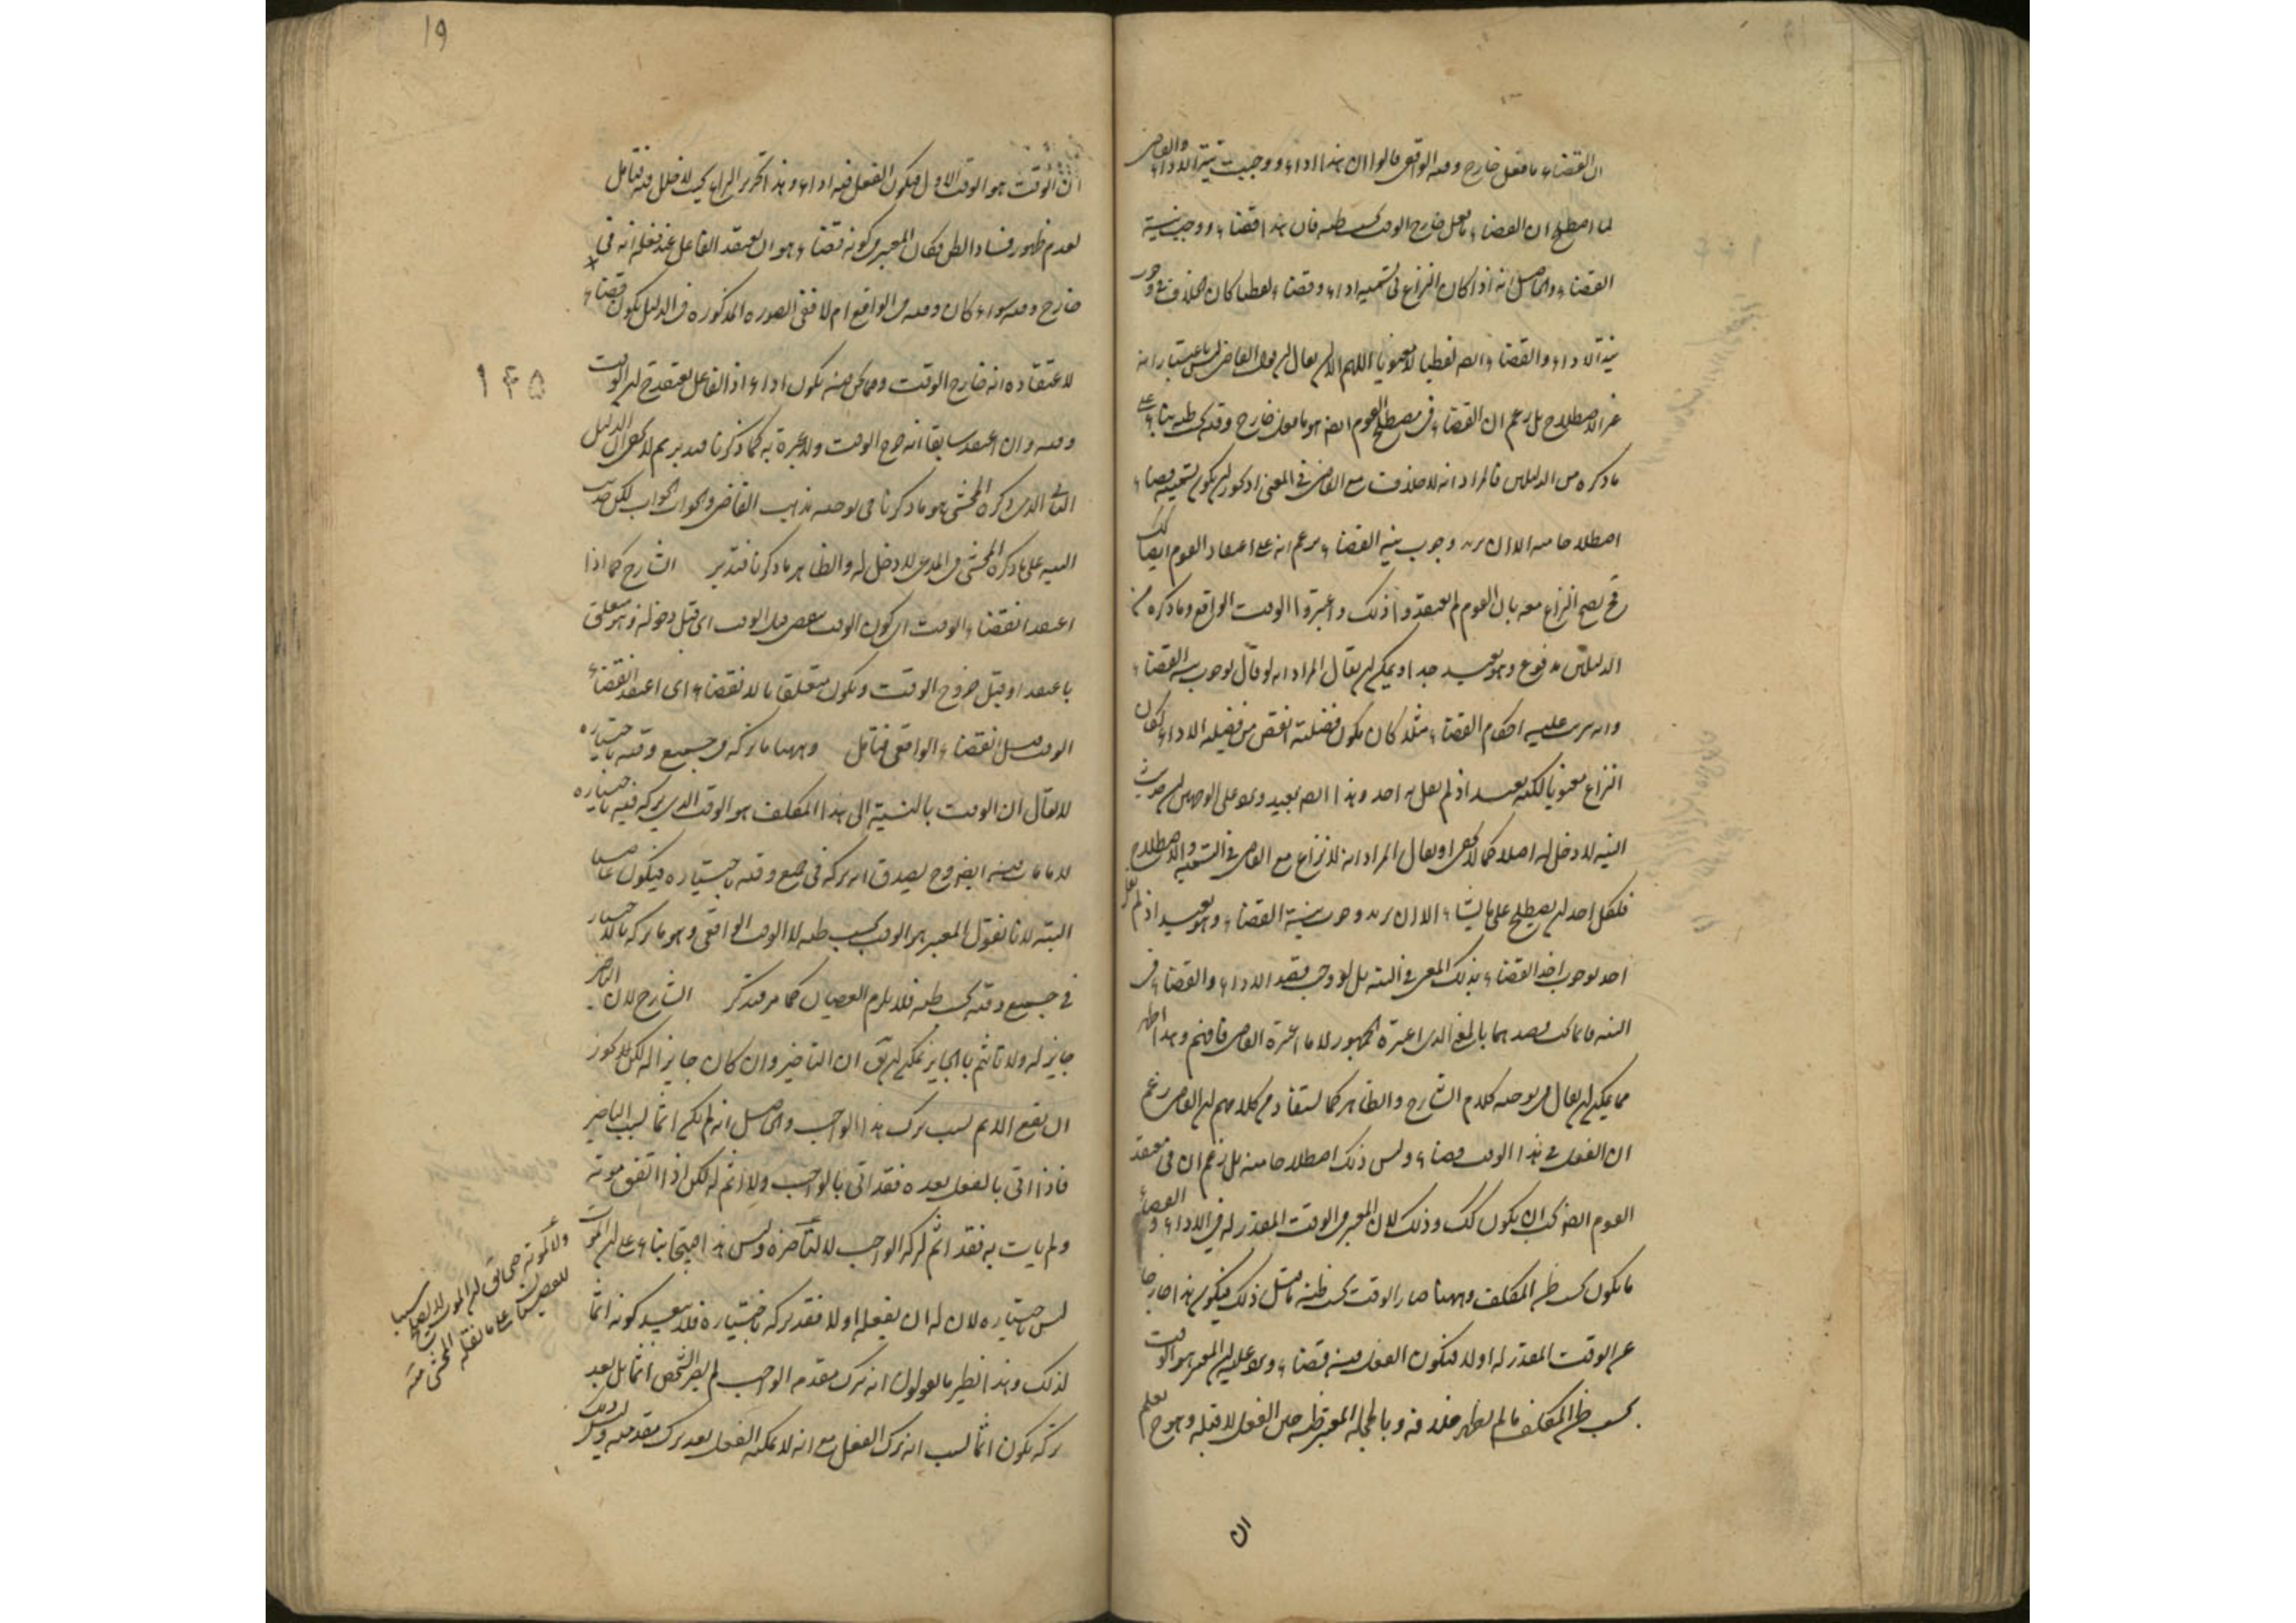 ان القضاء ما فعل خارج وقته الواقعي قالوا ان هذا اداء ووجبت نية الاداء والقاضي
لما اصطلح ان القضاء ما فعل خارج الوقت بحسب ظنه قال ان هذا قضاء ووجب نية
القضاء والحاصل انه اذا كان النزاع في تسميته اداء وقضاء لفظيا كان الخلاف في وجوب
نية الاداء والقضاء ايضا لفظيا لا معنويا اللهم الا ان يقال ان قول القاضي ليس باعتبار انه
غير الاصطلاح بل زعم ان القضاء في مصطلح القوم ايضا هو ما فعل خارج وقته بحسب ظنه بناء على
ما ذكره من الدليلين فالمراد انه لا خلاف مع القاضي في المعنى المذكور ان يكون تسميته قضاء
اصطلاحا منه الا ان يريد وجوب نية القضاء بزعم انه على اعتقاد القوم ايضا كذلك
فح يصح النزاع معه بان القوم لم يعتقدوا ذلك واعتبروا الوقت الواقع وما ذكره من
الدليلين مدفوع وهو بعيد جدا ويمكن ان يقال المراد انه لو قال بوجوب نية القضاء
وانه يترتب عليه احكام القضاء مثلا كان يكون فضيلته انقص من فضيلة الاداء لكان
النزاع معنويا لكنه بعيد اذ لم يقل به احد وهذا ايضا بعيد ويرد على الوجهين ان حديث
النية لا دخل له اصلا كما لا يخفى او يقال المراد انه لا نزاع مع القاضي في التسمية والاصطلاح
فلكل احد ان يصطلح على ما يشاء الا ان يريد وجوب نية القضاء وهو بعيد اذ لم يقل
احد بوجوب اخذ القضاء بذلك المعنى في النية بل لو وجب قصد الاداء والقضاء في
النية فانما يجب قصدهما بالمعنى الذي اعتبره الجمهور لا ما اعتبره القاضي فافهم وهذا اظهر
مما يمكن ان يقال في توجيه كلام الشارح والظاهر كما يستفاد من كلامهم ان القاضي زعم
ان الفعل في هذا الوقت قضاء وليس ذلك اصطلاحا منه بل زعم ان في معتقد
القوم ايضا يجب ان يكون كك وذلك لان المعتبر في الوقت المقدر له في الاداء والقضاء
ما يكون بحسب ظن المكلف وههنا صار الوقت بحسب ظنه قبل ذلك فيكون هذا خارجا
عن الوقت المقدر له اولا فيكون الفعل فيه قضاء ويرد عليه ان المعتبر هو الوقت
بحسب ظن المكلف ما لم يظهر خلافه وبالجملة المعتبر ظنه حين الفعل لا قبله وهو ح يعلم
ان
١٩
ان الوقت هو الوقت الاول فيكون الفعل فيه اداء وهذا تحرير المراد بحيث لا خلل فيه فتامل
لعدم ظهور فساد الظن فكان المعتبر في كونه قضاء هو ان يعتقد الفاعل عند فعله انه في
خارج وقته سواء كان وقته في الواقع ام لا ففي الصورة المذكورة في الدليل يكون قضاء
لاعتقاده انه خارج الوقت وفيما نحن فيه يكون اداء اذ الفاعل يعتقد ح انه الوقت
١٤٥
وقته وان اعتقد سابقا انه خرج الوقت ولا عبرة به كما ذكرنا فتدبر ثم لا يخفى ان الدليل
الثاني الذي ذكره المحشي هو ما ذكرنا في توجيه مذهب القاضي والجواب الجواب لكن حديث
النية على ما ذكره المحشي في المدعى لا دخل له والظاهر ما ذكرنا فتدبر الشارح كما اذا
اعتقد انقضاء الوقت اي كون الوقت ينقضي قبل الوقت اي قبل دخوله وهو متعلق
باعتقد او قبل خروج الوقت ويكون متعلقا بالانقضاء اي اعتقد انقضاء
الوقت قبل انقضاء الواقعي فتامل وههنا ما تركه في جميع وقته باختياره
لا يقال ان الوقت بالنسبة الى هذا المكلف هو الوقت الذي تركه فيه باختياره
لا ما مات فيه ايضا وح يصدق انه تركه في جميع وقته باختياره فيكون عاصيا
البتة لانا نقول المعتبر هو الوقت بحسب ظنه لا الوقت الواقعي وهو ما تركه بالاختيار
في جميع وقته بحسب ظنه فلا يلزم العصيان كما مر فتذكر الشارح لان التاخير
جايز له ولا تاثيم بالجايز يمكن ان يق ان التاخير وان كان جايزا له لكن لا يجوز
ان يقع الاثم بسبب ترك هذا الواجب والحاصل انه لم يكن اثما بسبب التاخير
فاذا اتى بالفعل بعده فقد اتى بالواجب ولا اثم له لكن اذا اتفق موته
ولم يات به فقد اثم لتركه الواجب لا لتاخيره وليس هذا قبيحا بناء على ان الموت
ليس باختياره لان له ان يفعله اولا فقد تركه باختياره فلا بعد في كونه اثما
لذلك وهذا نظير ما يقولون انه بترك مقدمة الواجب لم يصر الشخص اثما بل بعد
تركه يكون اثما بسبب انه ترك الفعل مع انه لا يمكنه الفعل بعد ترك مقدمته وليس ذلك
ولا لموته حتى يق ان الموت لا يصلح سببا
للعصيان على ما نقله المحشي منه